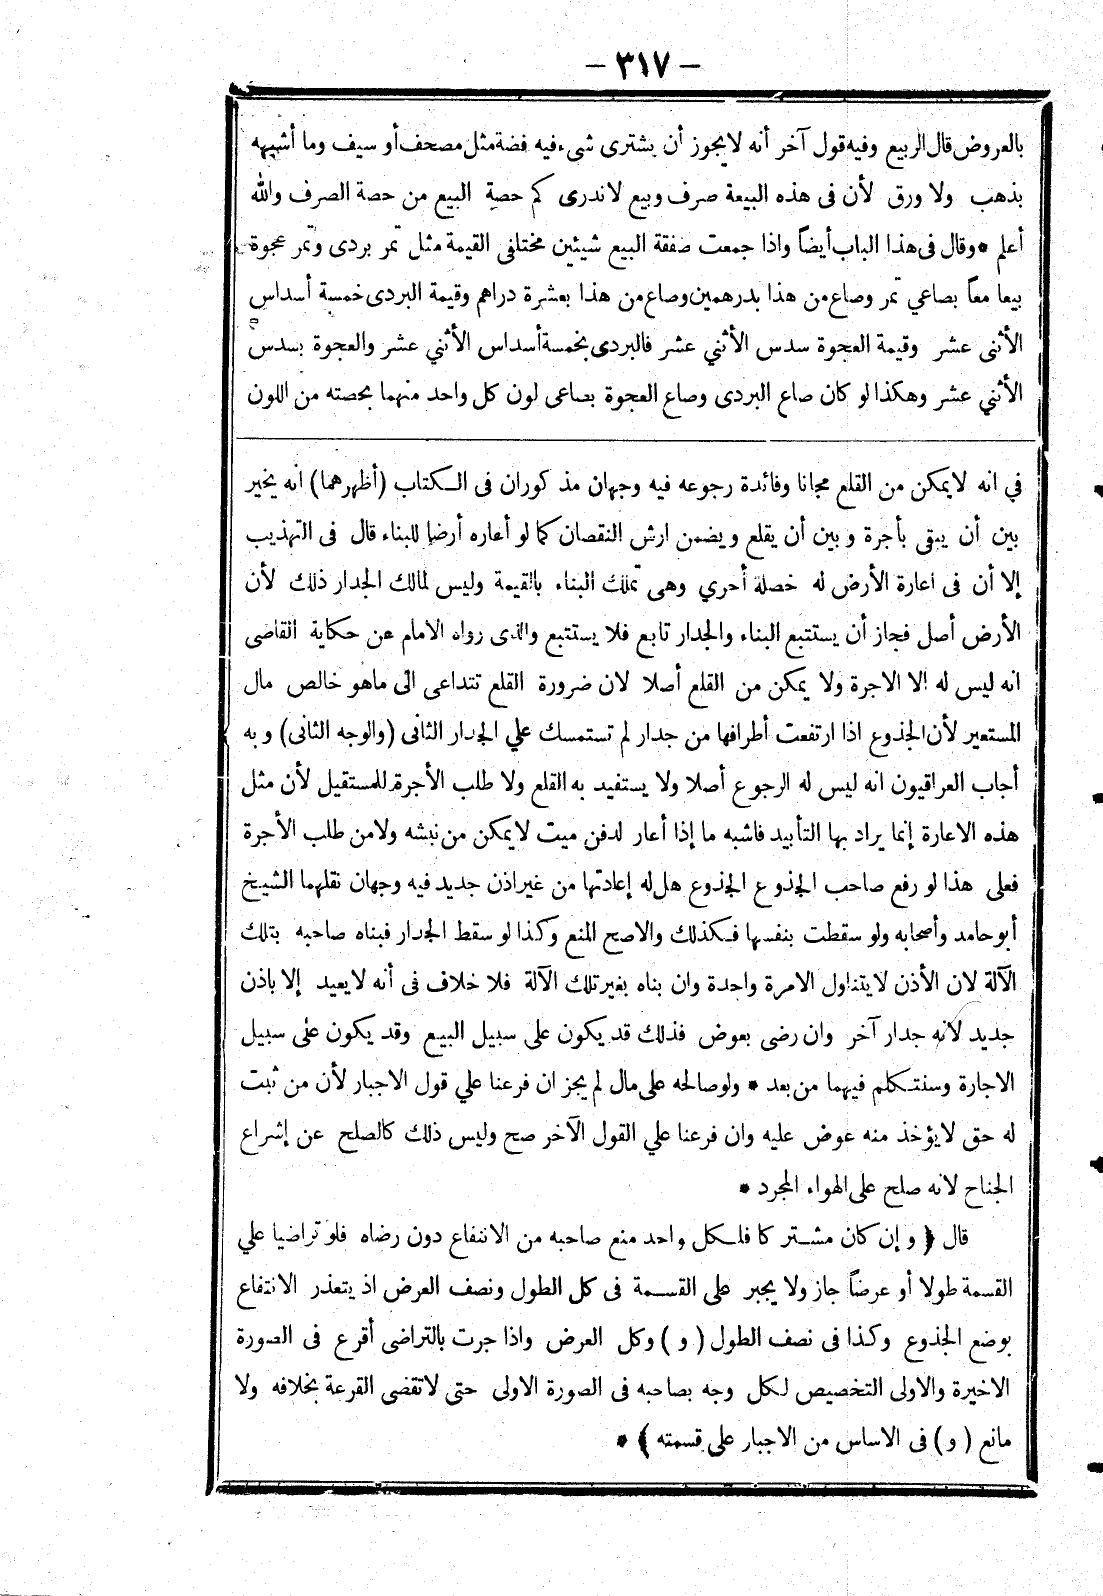 – ٣١٧ –
بالعروض قال الربيع وفيه قول آخر أنه لا يجوز أن يشترى شىء فيه فضة مثل مصحف أو سيف وما أشبهه
بذهب ولا ورق لأن فى هذه البيعة صرف وبيع لا ندرى كم حصة البيع من حصة الصرف والله
أعلم * وقال فى هذا الباب أيضاً واذا جمعت صفقة البيع شيئين مختلفى القيمة مثل تمر بردى وتمر عجوة
بيعا معاً بصاعي تمر وصاع من هذا بدرهمين وصاع من هذا بعشرة دراهم وقيمة البردى خمسة أسداس
الأثنى عشر وقيمة العجوة سدس الأثني عشر فالبردى بخمسة أسداس الأثني عشر والعجوة بسدس
الأثني عشر وهكذا لو كان صاع البردى وصاع العجوة بصاعى لون كل واحد منهما بحصته من اللون
في انه لا يمكن من القلع مجانا وفائدة رجوعه فيه وجهان مذكوران فى الكتاب (أظهرهما) انه يخير
بين أن يبقى بأجرة وبين أن يقلع ويضمن ارش النقصان كما لو أعاره أرضا للبناء قال فى التهذيب
إلا أن فى اعارة الأرض له خصلة أحري وهى تملك البناء بالقيمة وليس لمالك الجدار ذلك لأن
الأرض أصل فجاز أن يستتبع البناء والجدار تابع فلا يستتبع والذى رواه الامام عن حكاية القاضى
انه ليس له الا الاجرة ولا يمكن من القلع أصلا لان ضرورة القلع تتداعى الى ما هو خالص مال
المستعير لأن الجذوع اذا ارتفعت أطرافها من جدار لم تستمسك علي الجدار الثانى (والوجه الثانى) وبه
أجاب العراقيون انه ليس له الرجوع أصلا ولا يستفيد به القلع ولا طلب الأجرة للمستقيل لأن مثل
هذه الاعارة إنما يراد بها التأبيد فاشبه ما إذا أعار لدفن ميت لا يمكن من نبشه ولا من طلب الأجرة
فعلى هذا لو رفع صاحب الجذوع الجذوع هل له إعادتها من غير اذن جديد فيه وجهان نقلهما الشيخ
أبو حامد وأصحابه ولو سقطت بنفسها فكذلك والاصح المنع وكذا لو سقط الجدار فبناه صاحبه بتلك
الآلة لان الأذن لا يتناول الا مرة واحدة وان بناه بغير تلك الآلة فلا خلاف فى أنه لا يعيد إلا باذن
جديد لانه جدار آخر وان رضى بعوض فذلك قد يكون على سبيل البيع وقد يكون على سبيل
الاجارة وسنتكلم فيهما من بعد * ولو صالحه على مال لم يجز ان فرعنا علي قول الاجبار لأن من ثبت
له حق لا يؤخذ منه عوض عليه وان فرعنا علي القول الآخر صح وليس ذلك كالصلح عن إشراع
الجناح لانه صلح على الهواء المجرد *
قال ﴿ وإن كان مشتركا فلكل واحد منع صاحبه من الانتفاع دون رضاه فلو تراضيا علي
القسمة طولا أو عرضاً جاز ولا يجبر على القسمة فى كل الطول ونصف العرض اذ يتعذر الانتفاع
بوضع الجذوع وكذا فى نصف الطول ( و ) وكل العرض واذا جرت بالتراضى أقرع فى الصورة
الاخيرة والاولى التخصيص لكل وجه بصاحبه فى الصورة الاولى حتى لا تقضى القرعة بخلافه ولا
مانع ( و ) فى الاساس من الاجبار على قسمته ﴾ *